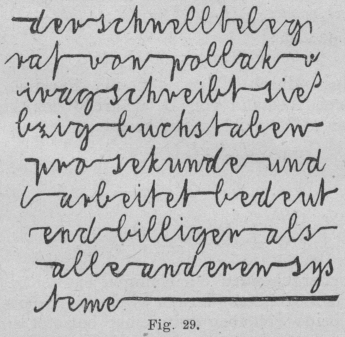 der schnelltelegr
raf von pollak v
irag schreibt sieb
bzig buchstaben
pro sekunde und
arbeitet bedeut
end billiger als
alle anderen sys
teme
Fig. 29.